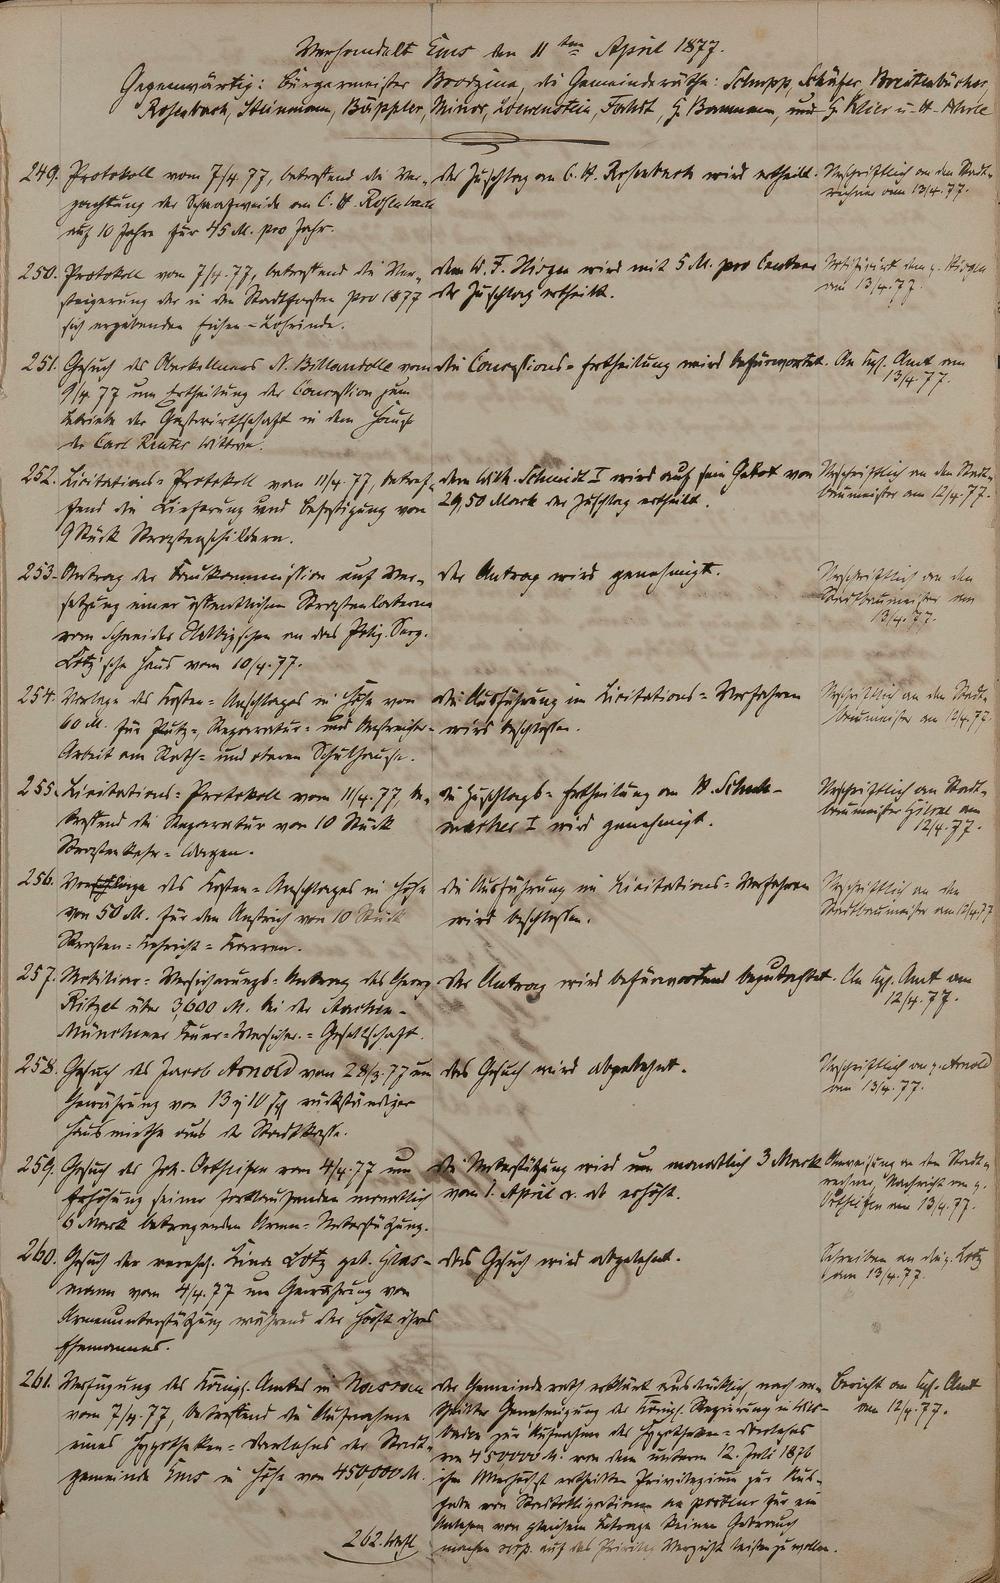 Verhandelt Ems den 11ten April 1877.
Gegenwärtig: Bürgermeister Wodzina, die Gemeinderäthe: Schupp, Schäfer, Breitenbücher,
Rosenbach, Steinmann, Büppler, Minor, Löwenstein, Farbst, H. Baumann, und H. Klier u. A. Ahrle
249. Protokoll vom 7/4 77, betreffend die Ver-
pachtung der Schaafweide an C. H. Rosenbach
auf 10 Jahre für 45 M. pro Jahr.
der Zuschlag an C. H. Rosenbach wird ertheilt.
Urschriftlich an den Stadt-
rechner am 13/4. 77.
250. Protokoll vom 7/4. 77, betreffend die Ver-
steigerung der in den Stadtforsten pro 1877
sich ergebenden Eichen-Lohrinde.
dem W. F. Hirgen wird mit 5 M. pro Centner
der Zuschlag ertheilt.
Notifizirt dem p. Hirgen
am 13/4. 77.
251. Gesuch des Oberkellners N. Billaudelle vom
9/4 77 um Ertheilung der Concession zum
Betriebe der Gastwirthschaft in dem Hause
der Carl Reuter Wittwe.
die Concessions-Ertheilung wird befürwortet.
An Kgl. Amt am
13/4. 77.
252. Licitations-Protokoll vom 11/4. 77, betref-
fend die Lieferung und Befestigung von
9 Stück Straßenschildern.
dem Wilh. Schmidt I wird auf sein Gebot von
29,50 Mark der Zuschlag ertheilt.
Urschriftlich an den Stadt-
baumeister am 12/4. 77.
253. Antrag der Baukommission auf Ver-
setzung einer öffentlichen Straßenlaterne
vom Schneider schen an das Phil. Georg
Lotz'sche Haus vom 10/4. 77.
der Antrag wird genehmigt.
Urschriftlich an den
Stadtbaumeister am
13/4. 77.
254. Vorlage des Kosten-Anschlages in Höhe von
60 M. für Putz-, Reparatur- und Anstreicher-
Arbeit am Rath- und oberen Schulhause.
die Ausführung im Licitations-Verfahren
wird beschlossen.
Urschriftlich an den Stadt-
baumeister am 12/4. 77.
255. Licitations-Protokoll vom 11/4. 77, be-
treffend die Reparatur von 10 Stück
Straßenkehr-Wagen.
die Zuschlags-Ertheilung an W. Schuh-
macher I wird genehmigt.
Urschriftlich an Stadt-
baumeister am
12/4. 77.
256. Vorlage des Kosten-Anschlages in Höhe
von 50 M. für den Anstrich von 10 Stück
Straßen-Kehricht-Karren.
die Ausführung im Licitations-Verfahren
wird beschlossen.
Urschriftlich an den
Stadtbaumeister am 12/4 77
257. Mobiliar-Versicherungs-Antrag des Georg
Ritzel über 3,600 M. bei der Aachen-
Münchener Feuer-Versicher.-Gesellschaft.
der Antrag wird befürwortend begutachtet.
An Kgl. Amt am
12/4. 77.
258. Gesuch des Jacob Arnold vom 28/3. 77 um
Gewährung von 13 M 10 Pf rückständiger
Hausmiethe aus der Stadtkasse.
das Gesuch wird abgelehnt.
Urschriftlich an p. Arnold
am 13/4. 77.
259. Gesuch des Joh. Ortseifen vom 4/4. 77 um
Erhöhung seiner fortlaufenden monatlich
6 Mark betragenden Armen-Unterstützung.
die Unterstützung wird um monatlich 3 Mark
vom 1. April c. ab erhöht.
Anweisung an den Stadt-
rechner, Nachricht an p.
Ortseifen am 13/4. 77.
260. Gesuch der verehel. Lina Lotz geb. Glas-
mann vom 4/4. 77 um Gewährung von
Armenunterstützung während der Haft ihres
Ehemannes.
das Gesuch wird abgelehnt.
Schreiben an die p. Lotz
vom 13/4. 77.
261. Verfügung des Königl. Amtes in Nassau
vom 7/4. 77, betreffend die Aufnahme
eines Hypotheken-Darlehns der Stadt-
gemeinde Ems in Höhe von 450,000 M.
der Gemeinderath erklärt ausdrücklich, nach er-
theilter Genehmigung der Königl. Regierung in Wies-
baden zur Aufnahme des Hypotheken-Darlehns
von 450,000 M. von dem unterm 12. Juli 1876
ihm Allerhöchst ertheilten Privilegium zur Aus-
gabe von Stadtobligationen au porteur für ein
Anlehen von gleichem Betrage keinen Gebrauch
machen resp. auf das Privileg Verzicht leisten zu wollen.
Bericht an Kgl. Amt
am 12/4. 77.